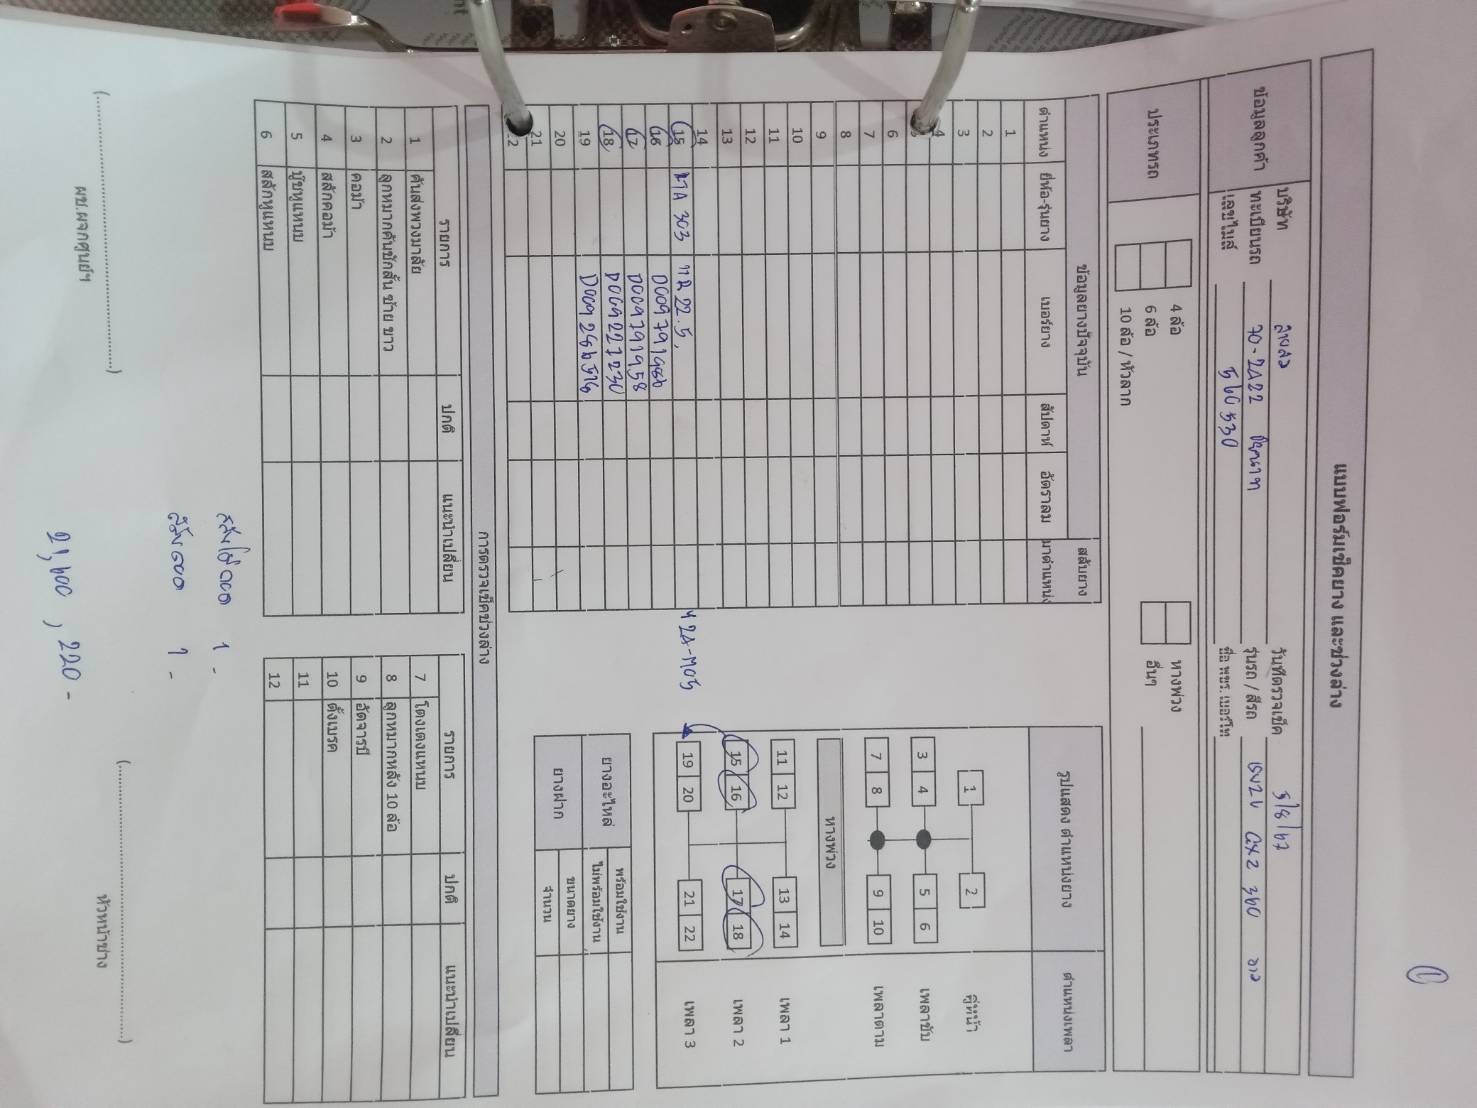 1
แบบฟอร์มเช็คยาง และช่วงล่าง
ข้อมูลลูกค้า
บริษัท สายสอ วันที่ตรวจเช็ค 5/8/67
ทะเบียนรถ 70-2422 ชัยนาท รุ่นรถ / สีรถ GXZ 360
เลขไมล์ 560530 ชื่อ พขร. เบอร์โท
ประเภทรถ
4 ล้อ หางพ่วง
6 ล้อ อื่นๆ
10 ล้อ / หัวลาก
ข้อมูลยางปัจจุบัน สลับยาง
ตำแหน่ง ยี่ห้อ-รุ่นยาง เบอร์ยาง สัปดาห์ อัตราลม มาตำแหน่ง
1
2
3
4
6
7
8
9
10
11
12
13
14
15 303 11R 22.5, 424-M05
16 D009791986
17 D009791958
18 D009227230
19
20
21
รูปแสดง ตำแหน่งยาง ตำแหน่งเพลา
1 2 คู่หน้า
3 4 5 6 เพลาขับ
7 8 9 10 เพลาตาม
หางพ่วง
11 12 13 14 เพลา 1
15 16 17 18 เพลา 2
19 20 21 22 เพลา 3
ยางอะไหล่ พร้อมใช้งาน
ไม่พร้อมใช้งาน
ยางฝาก ขนาดยาง
จำนวน
การตรวจเช็คช่วงล่าง
รายการ ปกติ แนะนำเปลี่ยน
1 คันส่งพวงมาลัย
2 ลูกหมากคันชักสั้น ซ้าย ขาว
3 คอม้า
4 สลักคอม้า
5 บู๊ชหูแหนบ
6 สลักหูแหนบ
รายการ ปกติ แนะนำเปลี่ยน
7 โตงเตงแหนบ
8 ลูกหมากหลัง 10 ล้อ
9 อัดจารบี
10 ตั้งเบรค
11
12
1 -
1 -
(........................) (........................)
ผช.ผจกศูนย์ฯ หัวหน้าช่าง
21,600 , 220 -